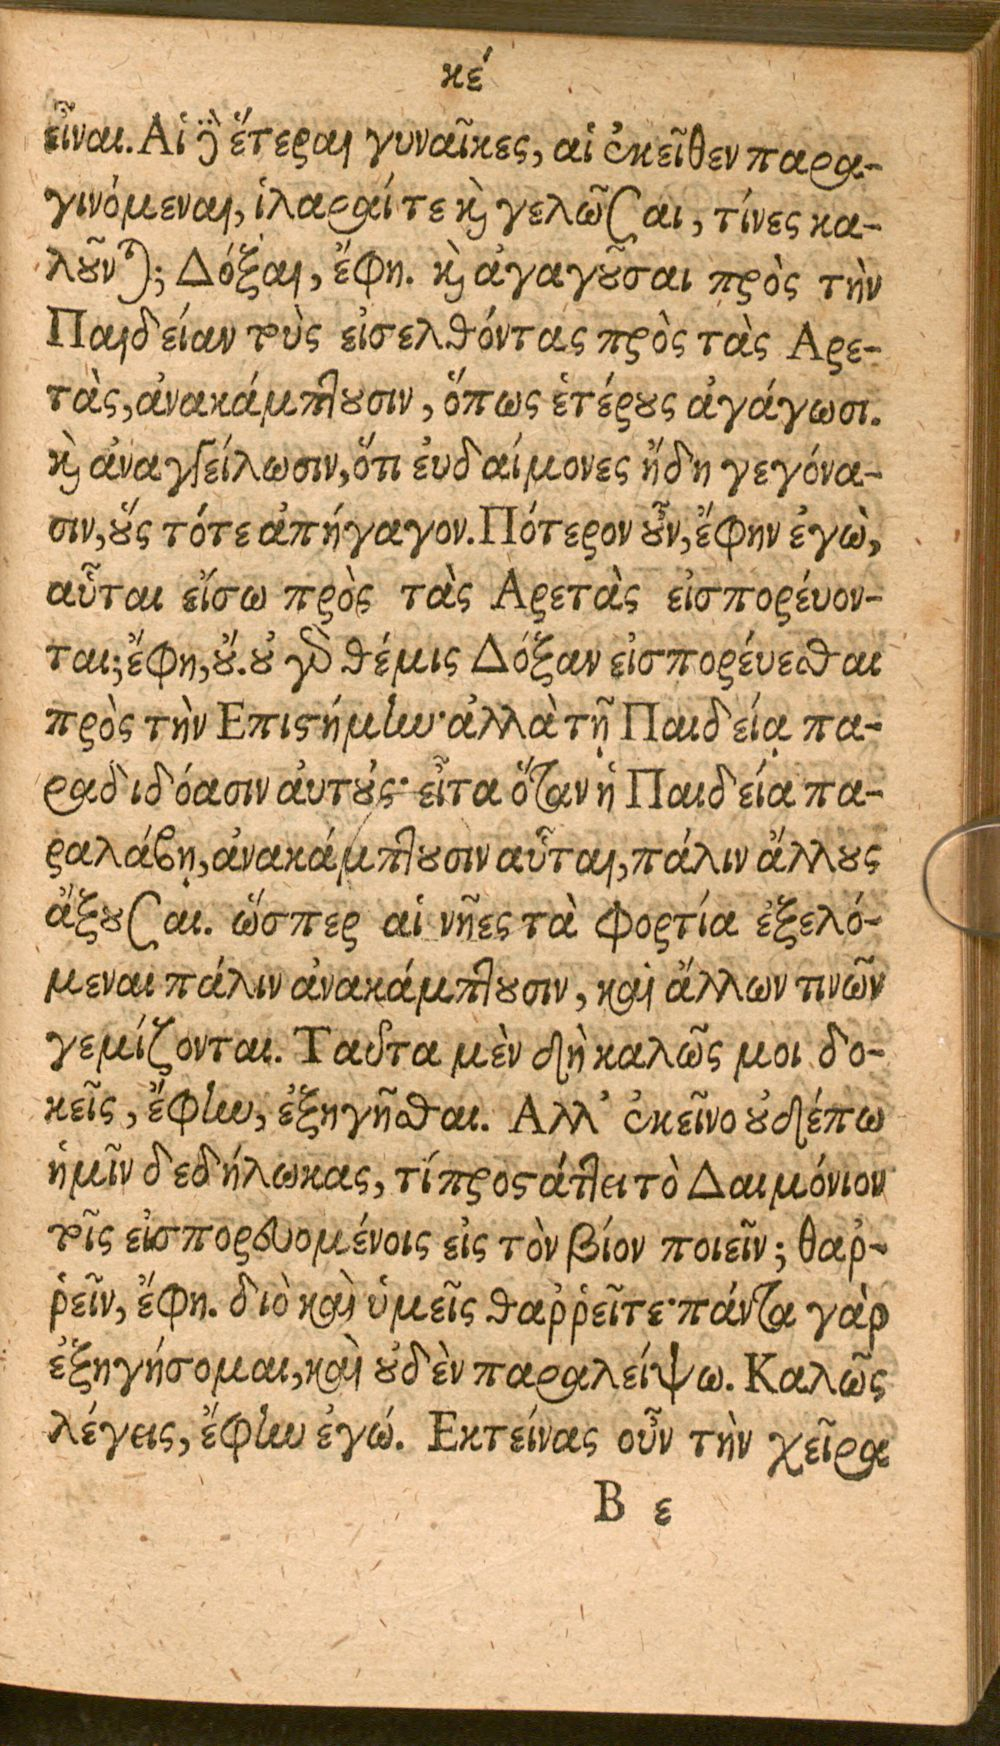 κέ
εἶναι. Αἱ δὲ ἕτεραι γυναῖκες, αἱ ἐκεῖθεν παρα-
γινόμεναι, ἱλαραί τε καὶ γελῶσαι, τίνες κα-
λοῦνται; Δόξαι, ἔφη. καὶ ἀγαγοῦσαι πρὸς τὴν
Παιδείαν τοὺς εἰσελθόντας πρὸς τὰς Αρε-
τὰς, ἀνακάμπτουσιν, ὅπως ἑτέρους ἀγάγωσι.
καὶ ἀναγγείλωσιν, ὅτι ἐυδαίμονες ἤδη γεγόνα-
σιν, οὕς τότε ἀπήγαγον. Πότερον οὖν, ἔφην ἐγὼ,
αὗται εἴσω πρὸς τὰς Αρετὰς εἰσπορέυον-
ται; ἔφη, οὔ. οὐ γὰρ θέμις Δόξαν εἰσπορέυεσθαι
πρὸς τὴν Επιστήμην· ἀλλὰ τῇ Παιδείᾳ πα-
ραδιδόασιν ἀυτούς· εἶτα ὅταν ἡ Παιδεία πα-
ραλάβῃ, ἀνακάμπτουσιν αὗται, πάλιν ἄλλους
ἄξουσαι. ὥσπερ αἱ νῆες τὰ φορτία ἐξελό-
μεναι πάλιν ἀνακάμπτουσιν, καὶ ἄλλων τινῶν
γεμίζονται. Ταῦτα μὲν δὴ καλῶς μοι δο-
κεῖς, ἔφην, ἐξηγῆσθαι. Αλλ' ἐκεῖνο οὐδέπω
ἡμῖν δεδήλωκας, τί προστάττει τὸ Δαιμόνιον
τοῖς εἰσπορευομένοις εἰς τὸν βίον ποιεῖν; θαῤ-
ῥεῖν, ἔφη. διὸ καὶ ὑμεῖς θαῤῥεῖτε· πάντα γὰρ
ἐξηγήσομαι, καὶ οὐδὲν παραλείψω. Καλῶς
λέγεις, ἔφην ἐγώ. Εκτείνας οὖν τὴν χεῖρα
Β ε